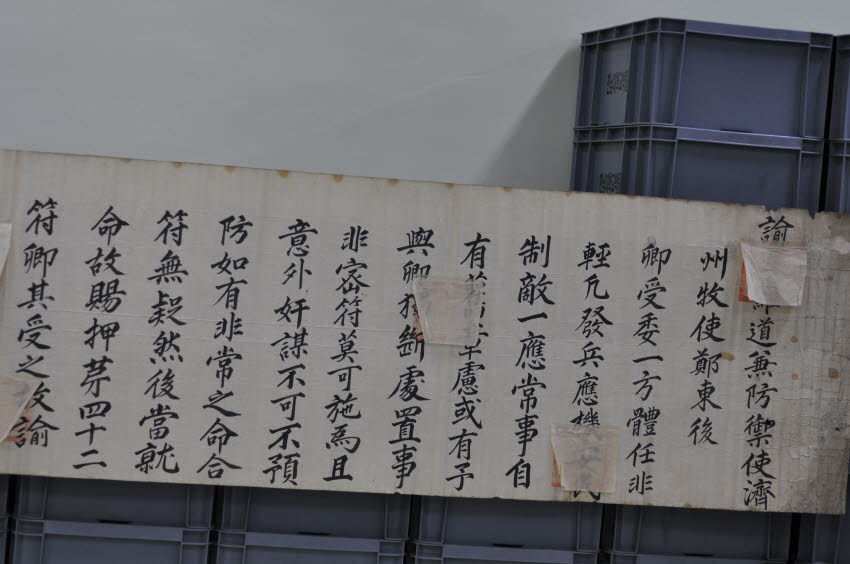 諭道兼防禦使濟
州牧使鄭東後
卿受委一方體任非
輕凡發兵應機民
制敵一應常事自
有慮或有予
與卿獨斷處置事
非密符莫可施爲且
意外奸謀不可不預
防如有非常之命合
符無疑然後當就
命故賜押苐四十二
符卿其受之故諭